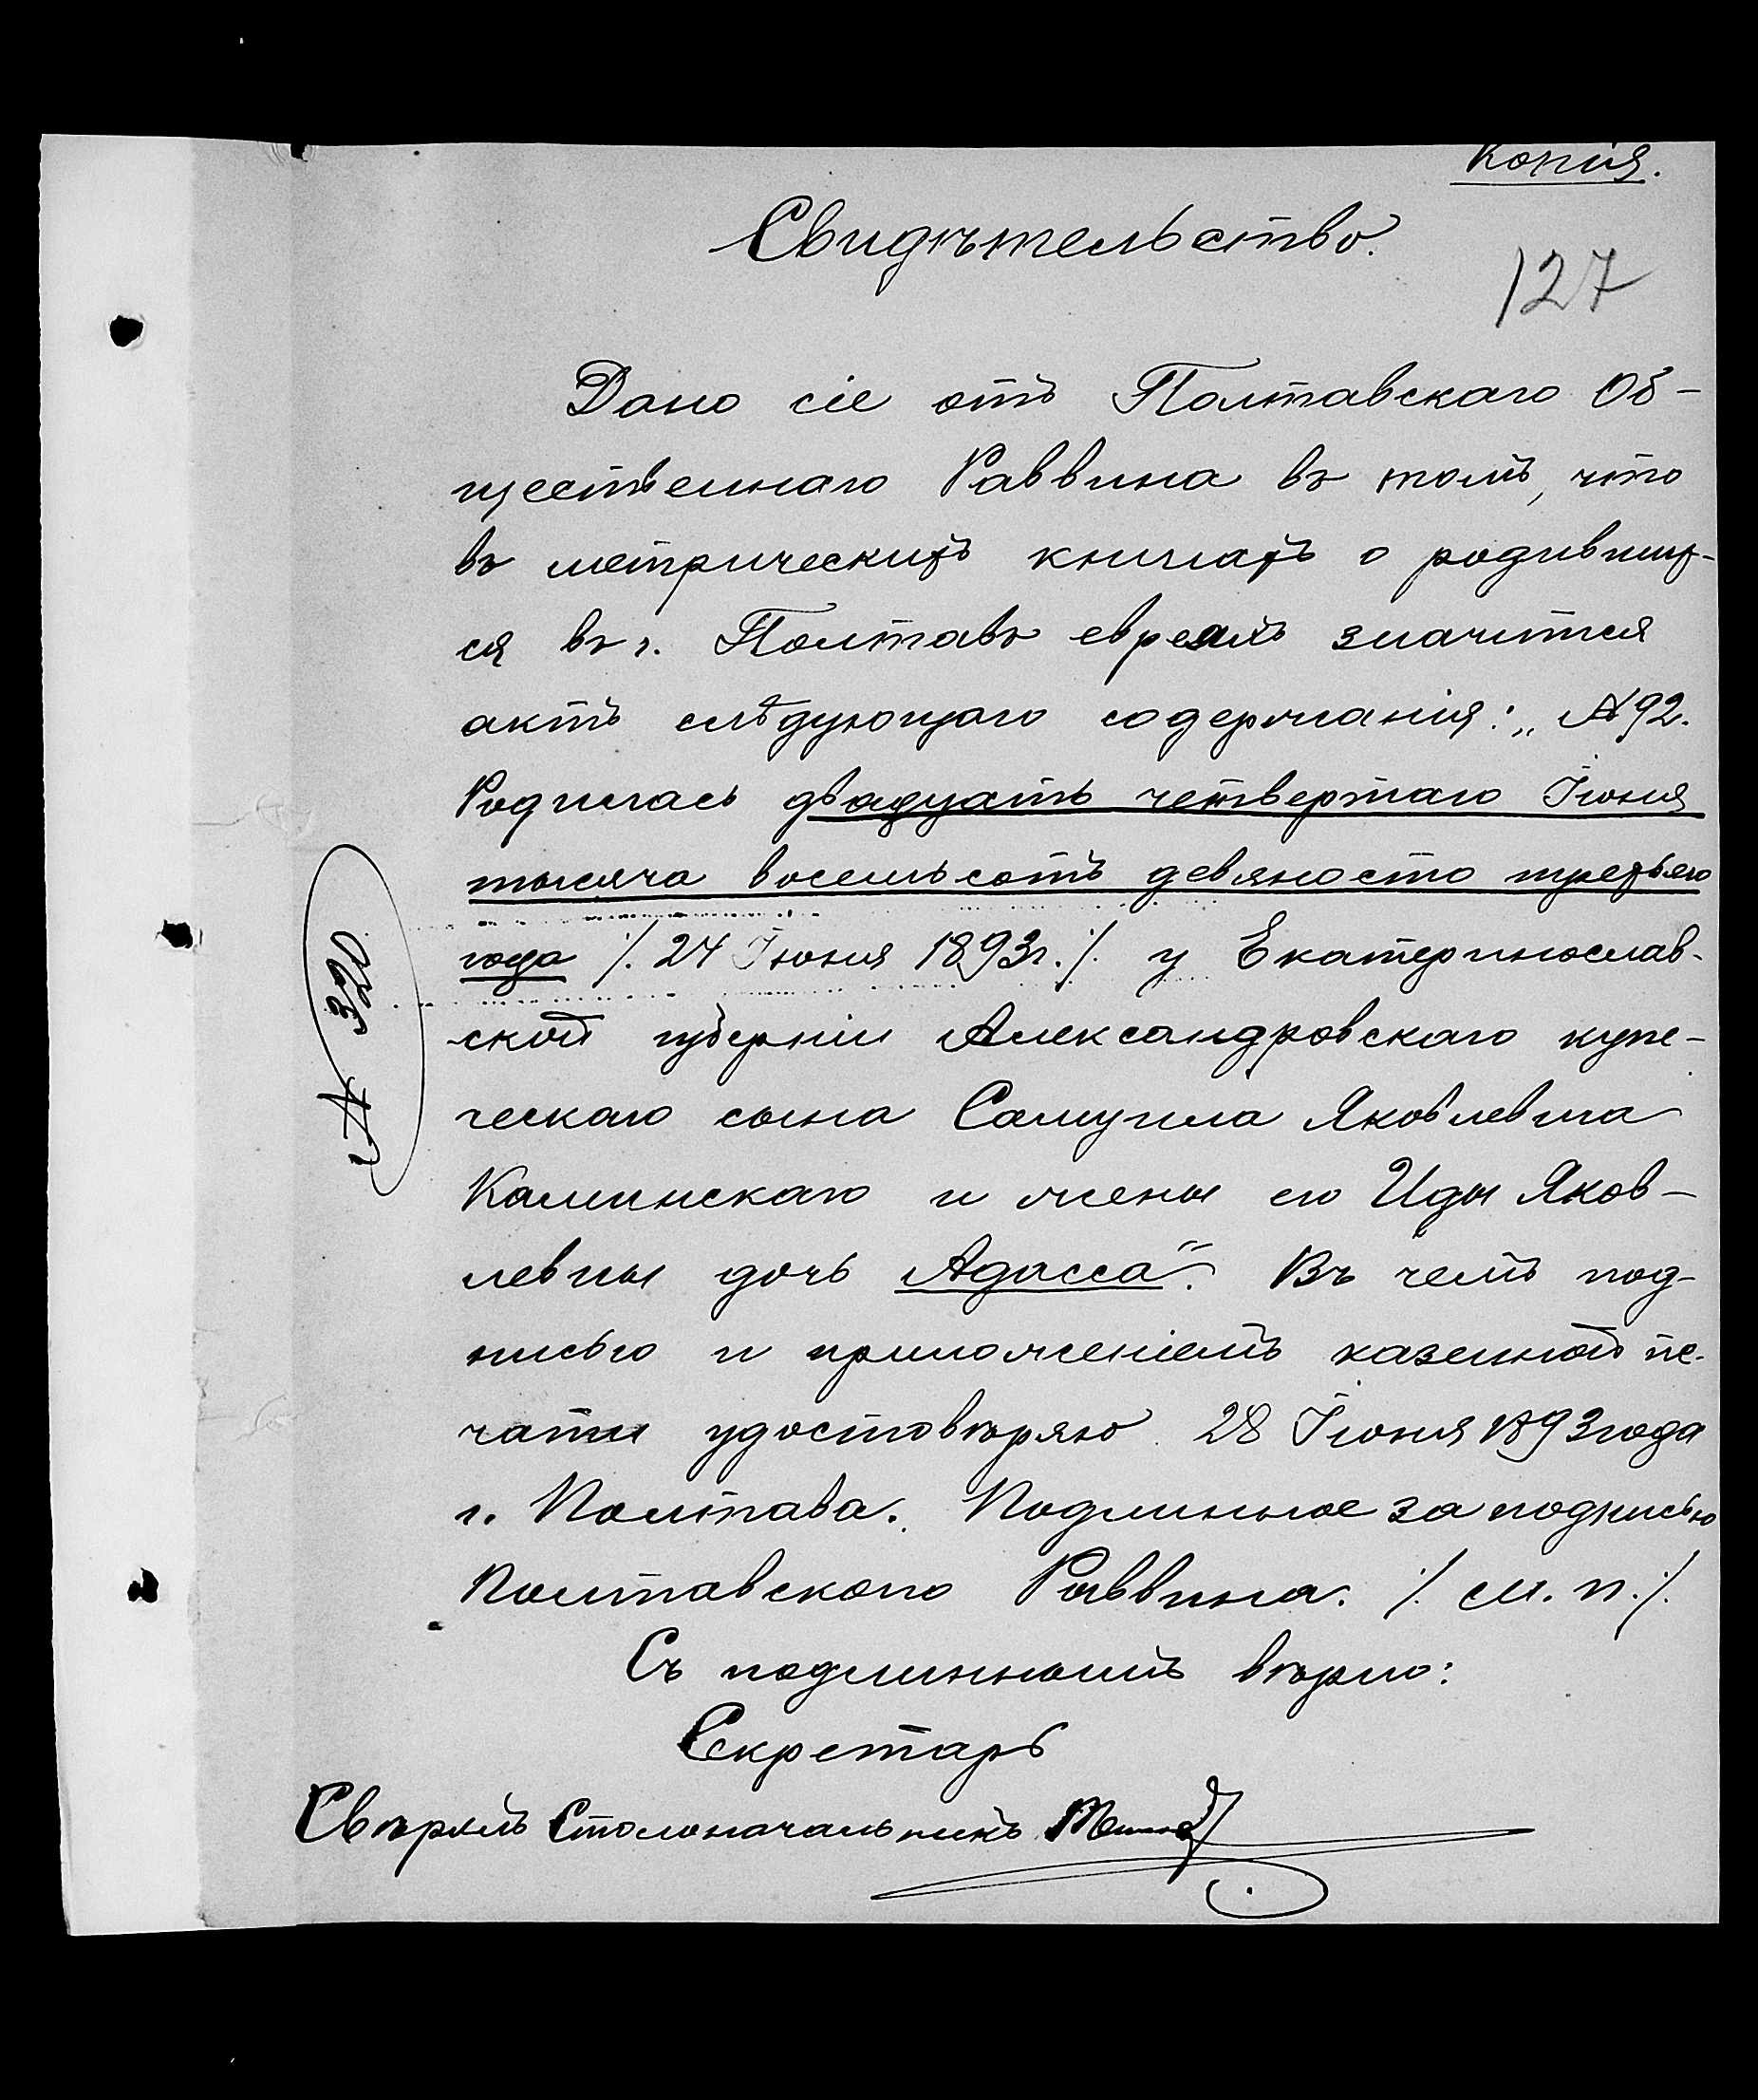 Копія.
Свидѣтельство.
127
Дано сіе отъ Полтавскаго Об-
щественнаго Раввина въ томъ, что
въ метрическихъ книгахъ о родивших-
ся въ г. Полтавѣ евреяхъ значится
актъ слѣдующаго содержанія: „№92.
Родилась двадцать четвертаго Іюня
тысяча восемьсотъ девяносто третьяго
года /. 24 Іюня 1893г. /. у Екатеринослав-
ской губерніи Александровскаго купе-
ческаго сына Самуила Яковлевича
Каминскаго и жены его Иды Яков-
левны дочь Адасса“. Въ чемъ под-
писью и приложеніемъ казенной пе-
чати удостовѣряю. 28 Іюня 1893 года
г. Полтава. Подлинное за подписью
Полтавскаго Раввина. /. М. П. /.
Съ подлиннымъ вѣрно:
Секретарь
Свѣрялъ Столоначальникъ
320